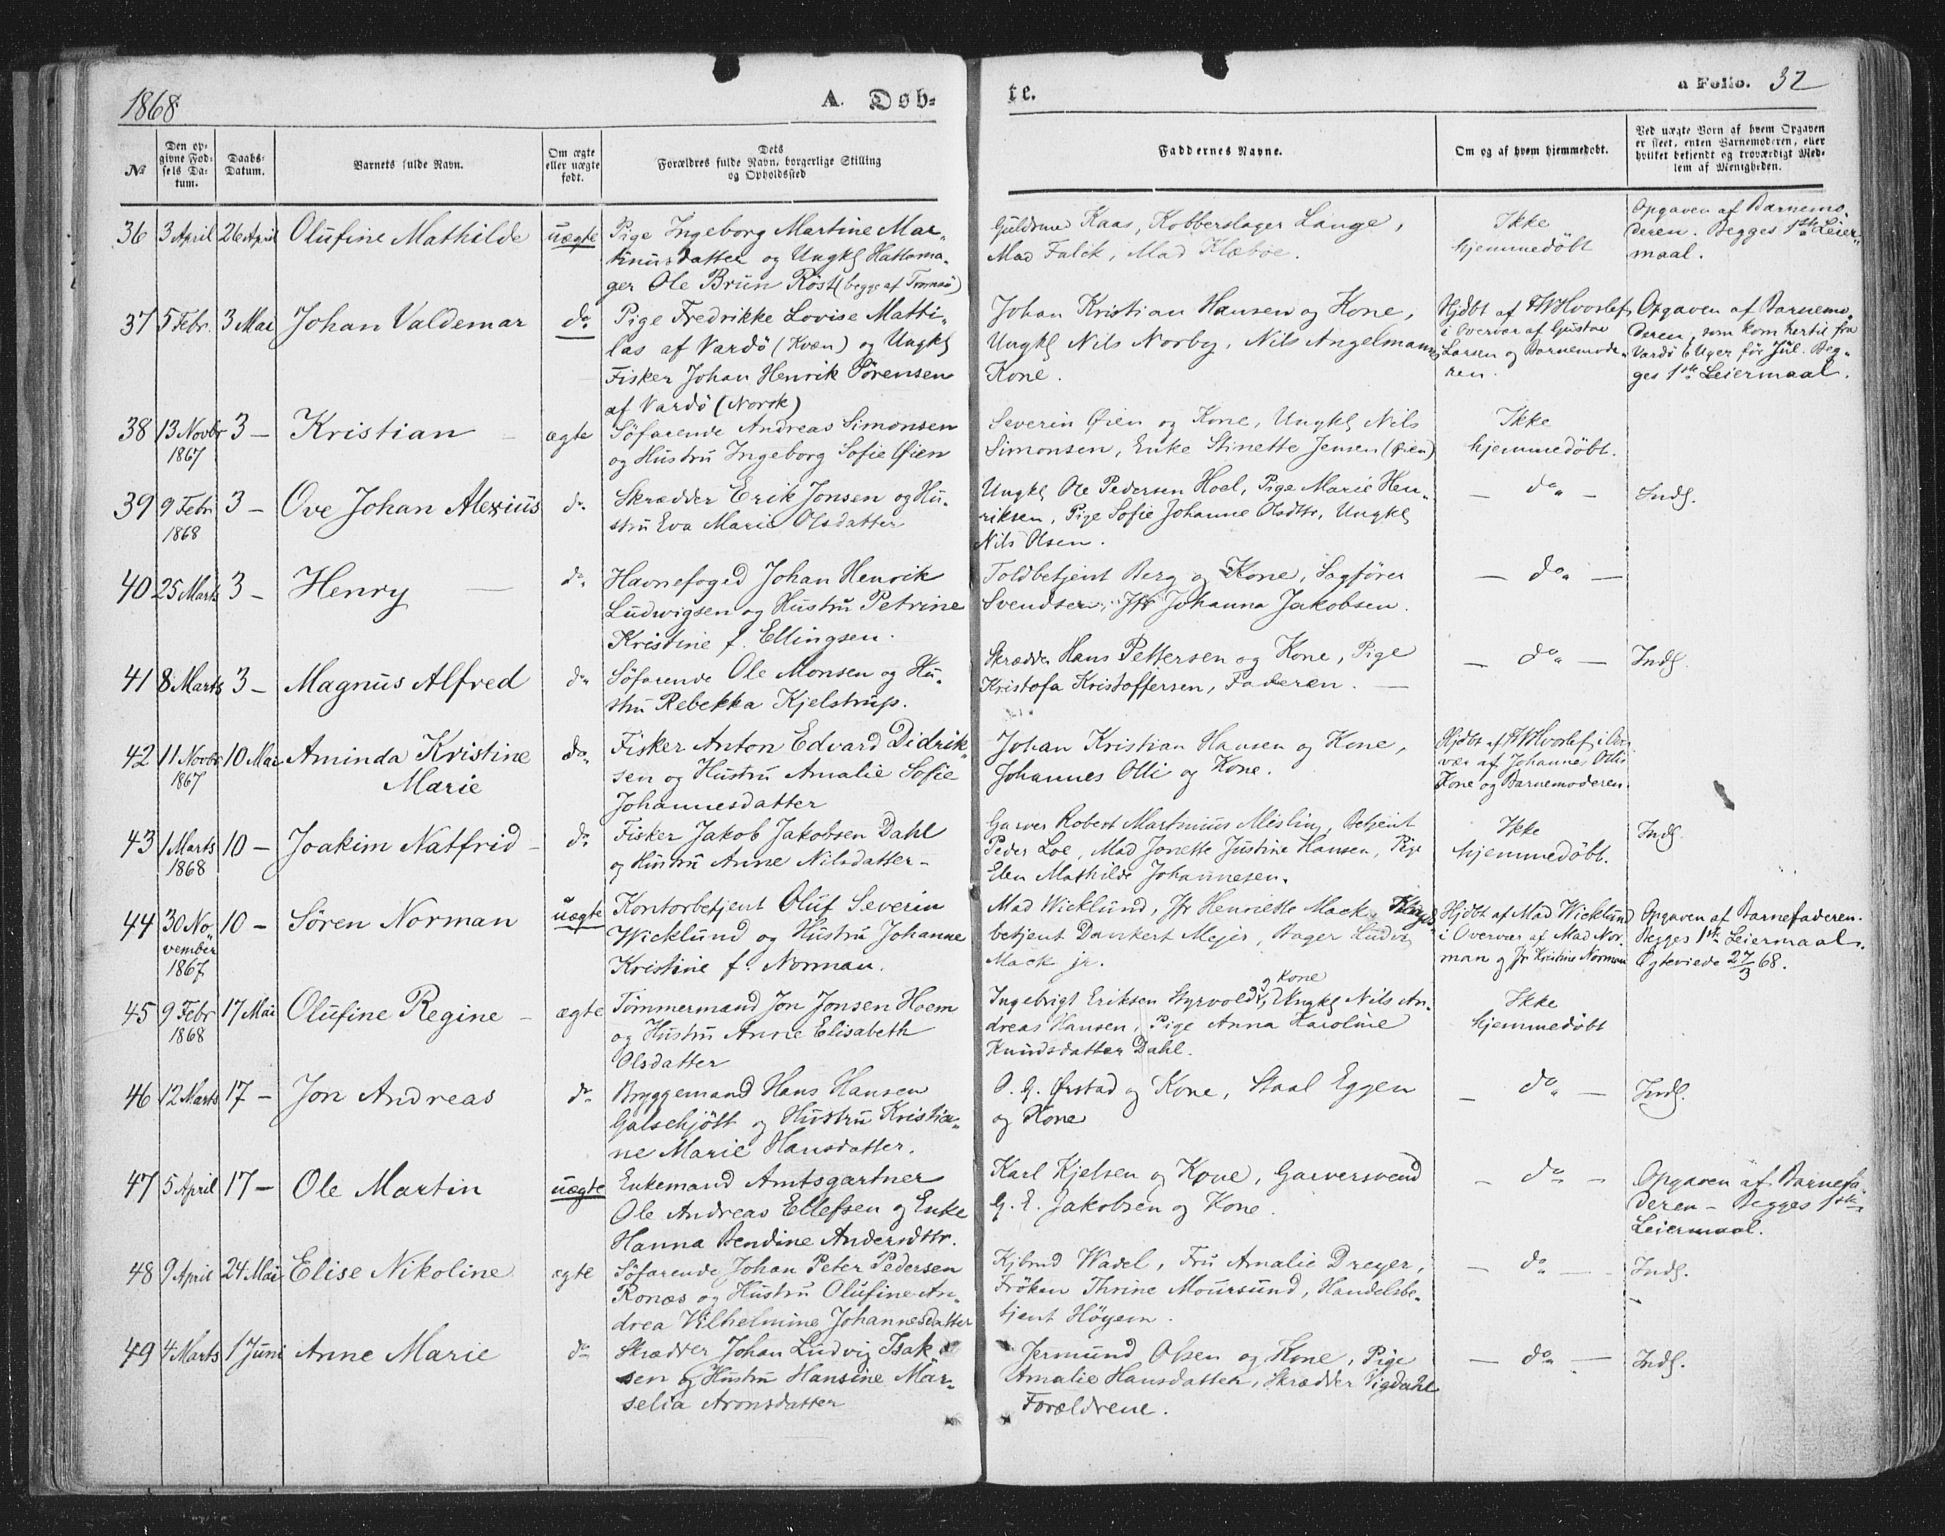 1868
A. Døb-
te.
a Folio. 32
No
Den op-
givne Fød-
sels Da-
tum.
Daabs-
Datum.
Barnets fulde Navn.
Om ægte
eller uægte
født.
Dets
Forældres fulde Navn, borgerlige Stilling
og Opholdssted
Faddernes Navne.
Om og af hvem hjemmedøbt.
Ved uægte Børn af hvem Opgaven
er skeet, enten Barnemoderen, eller
hvilket bekjendt og troværdigt Med-
lem af Menigheden.
36 3 April 26 April Olufine Mathilde uægte
Pige Ingeborg Martine Mar-
tinusdatter og Ungkl Hattema-
ger Ole Brun Röst (begge af Tromsö)
Kaas, Kobberslager Lange,
Mad Falck, Mad Klæboe.
Ikke
hjemmedöbt
Opgaven af Barnemo-
deren. Begges 1ste Leier-
maal.
37 5 Febr. 3 Mai Johan Valdemar do
Pige Fredrikke Lovise Matti-
las af Vardö (Kvæn) og Ungkl
Fisker Johan Henrik Sörensen
af Vardö (Norsk)
Johan Kristian Hansen og Kone,
Ungkl Nils Norby, Nils Angelmanns
Kone.
Hjdbt af FWHvoslef
i Overvær af Gustav
Larsen og Barnemode-
ren.
Opgaven af Barnemo-
deren, som kom hertil fra
Vardö 6 Uger för Jul. Beg-
ges 1ste Leiermaal.
38 13 Novbr 1867 3 - Kristian - ægte
Söfarende Andreas Simonsen
og Hustru Ingeborg Sofie Øien
Severin Øien og Kone, Ungkl Nils
Simonsen, Enke Stinette Jensen (Øien)
Ikke
hjemmedöbt.
39 9 Febr 1868 3 - Ove Johan Alexius do
Skrædder Erik Jonsen og Hu-
stru Eva Maria Olsdatter
Ungkl Ole Pedersen Hoel, Pige Marie Hen-
riksen, Pige Sofie Johanne Olsdtr, Ungkl
Nils Olsen.
- do -
Indl.
40 25 Marts 3 - Henry - do
Havnefoged Johan Henrik
Ludwigsen og Hustru Petrine
Kristine f. Ellingsen.
Toldbetjent Berg og Kone, Sagförer
Svendsen, Jfr Johanna Jakobsen.
- do -
41 8 Marts 3 - Magnus Alfred do
Söfarende Ole Monsen og Hu-
stru Rebekka Kjelstrup.
Skrædder Hans Pettersen og Kone, Pige
Kristofa Kristoffersen, Faderen. -
- do -
Indl.
42 11 Novbr 1867 10 Mai Aminda Kristine
Marie do
Fisker Anton Edvard Didrik-
sen og Hustru Amalie Sofie
Johannesdatter
Johan Kristian Hansen og Kone,
Johannes Olli og Kone.
Hjdbt af FWHvoslef i Over-
vær af Johannes Ollis
Kone og Barnemoderen.
43 1 Marts 1868 10 - Joakim Natfrid - do
Fisker Jakob Jakobsen Dahl
og Hustru Anne Nilsdatter -
Garver Robert Martinius Misling, Betjent
Peder Loe, Mad Jonette Justine Hansen, Pige
Elen Mathilde Johannesen.
Ikke
hjemmedöbt.
Indl.
44 30 No-
vember
1867 10 - Sören Norman uægte
Kontorbetjent Oluf Severin
Wicklund og Hustru Johanne
Kristine f. Norman.
Mad Wicklund, Jfr Henriette Mack,
betjent Dankert Mejer, Bager Ludvig
Mack jr.
Hjdbt af Mad Wicklund
i Overvær af Mad Nor-
man og Jfr Kristine Norman
Opgaven af Barnefaderen.
Begges 1ste Leiermaal.
Ægteviede 27/3 68.
45 9 Febr 1868 17 Mai Olufine Regine - ægte
Tömmermand Jon Jonsen Hoem
og Hustru Anne Elisabeth
Olsdatter
Ingebrigt Eriksen Styrvold og Kone, Ungkl Nils An-
dreas Hansen, Pige Anna Karoline
Knudsdatter Dahl.
Ikke
hjemmedöbt
46 12 Marts 17 - Jon Andreas do
Bryggemand Hans Hansen
Galschjött og Hustru Kristia-
ne Marie Hansdatter.
O. G. Ørstad og Kone, Staal Eggen
og Kone
- do -
Indl.
47 5 April 17 - Ole Martin uægte
Enkemand Amtsgartner
Ole Andreas Ellefsen og Enke
Hanna Bendine Andersdtr.
Karl Kjelsen og Kone, Garversvend
G. E. Jakobsen og Kone.
- do -
Opgaven af Barnefa-
deren - Begges 1ste
Leiermaal.
48 9 April 24 Mai Elise Nikoline ægte
Söfarende Johan Peter Pedersen
Ronæs og Hustru Olufine An-
drea Vilhelmine Johannesdatter
Kjbmd Wadel, Fru Amalie Dreyer,
Fröken Thrine Moursund, Handelsbe-
tjent Höyem.
- do -
Indl.
49 4 Marts 1 Juni Anne Marie do
Skrædder Johan Ludvig Isak-
sen og Hustru Hansine Mar-
selia Aronsdatter
Jermund Olsen og Kone, Pige
Amalie Hansdatter, Skrædder Vigdahl
Forældrene.
- do -
Indl.